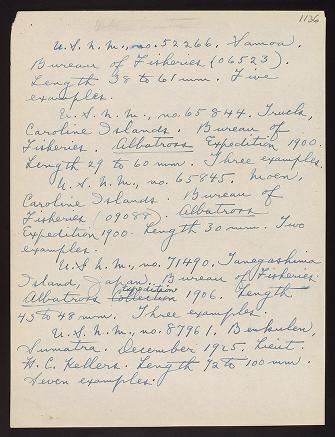 1136
U.S.N.M., no. 52266. Samoa.
Bureau of Fisheries (06523).
Length 38 to 61 mm. Five
examples.
U.S.N.M., no. 65844. Truck,
Caroline Islands. Bureau of
Fisheries. Albatross Expedition 1900.
Length 29 to 60 mm. Three examples.
U.S.N.M., no. 65845. Moen,
Caroline Islands. Bureau of
Fisheries (09088). Albatross
Expedition 1900. Length 30 mm. Two
examples.
U.S.N.M., no. 71490, Tanegashima
Island, Japan. Bureau of Fisheries.
Expedition
Albatross Collection 1906. Length
45 to 48 mm. Three examples.
U.S.N.M., no. 87961. Benkulen,
Sumatra. December 1925. Lieut.
H. C. Kellers. Length 72 to 100 mm.
Seven examples.